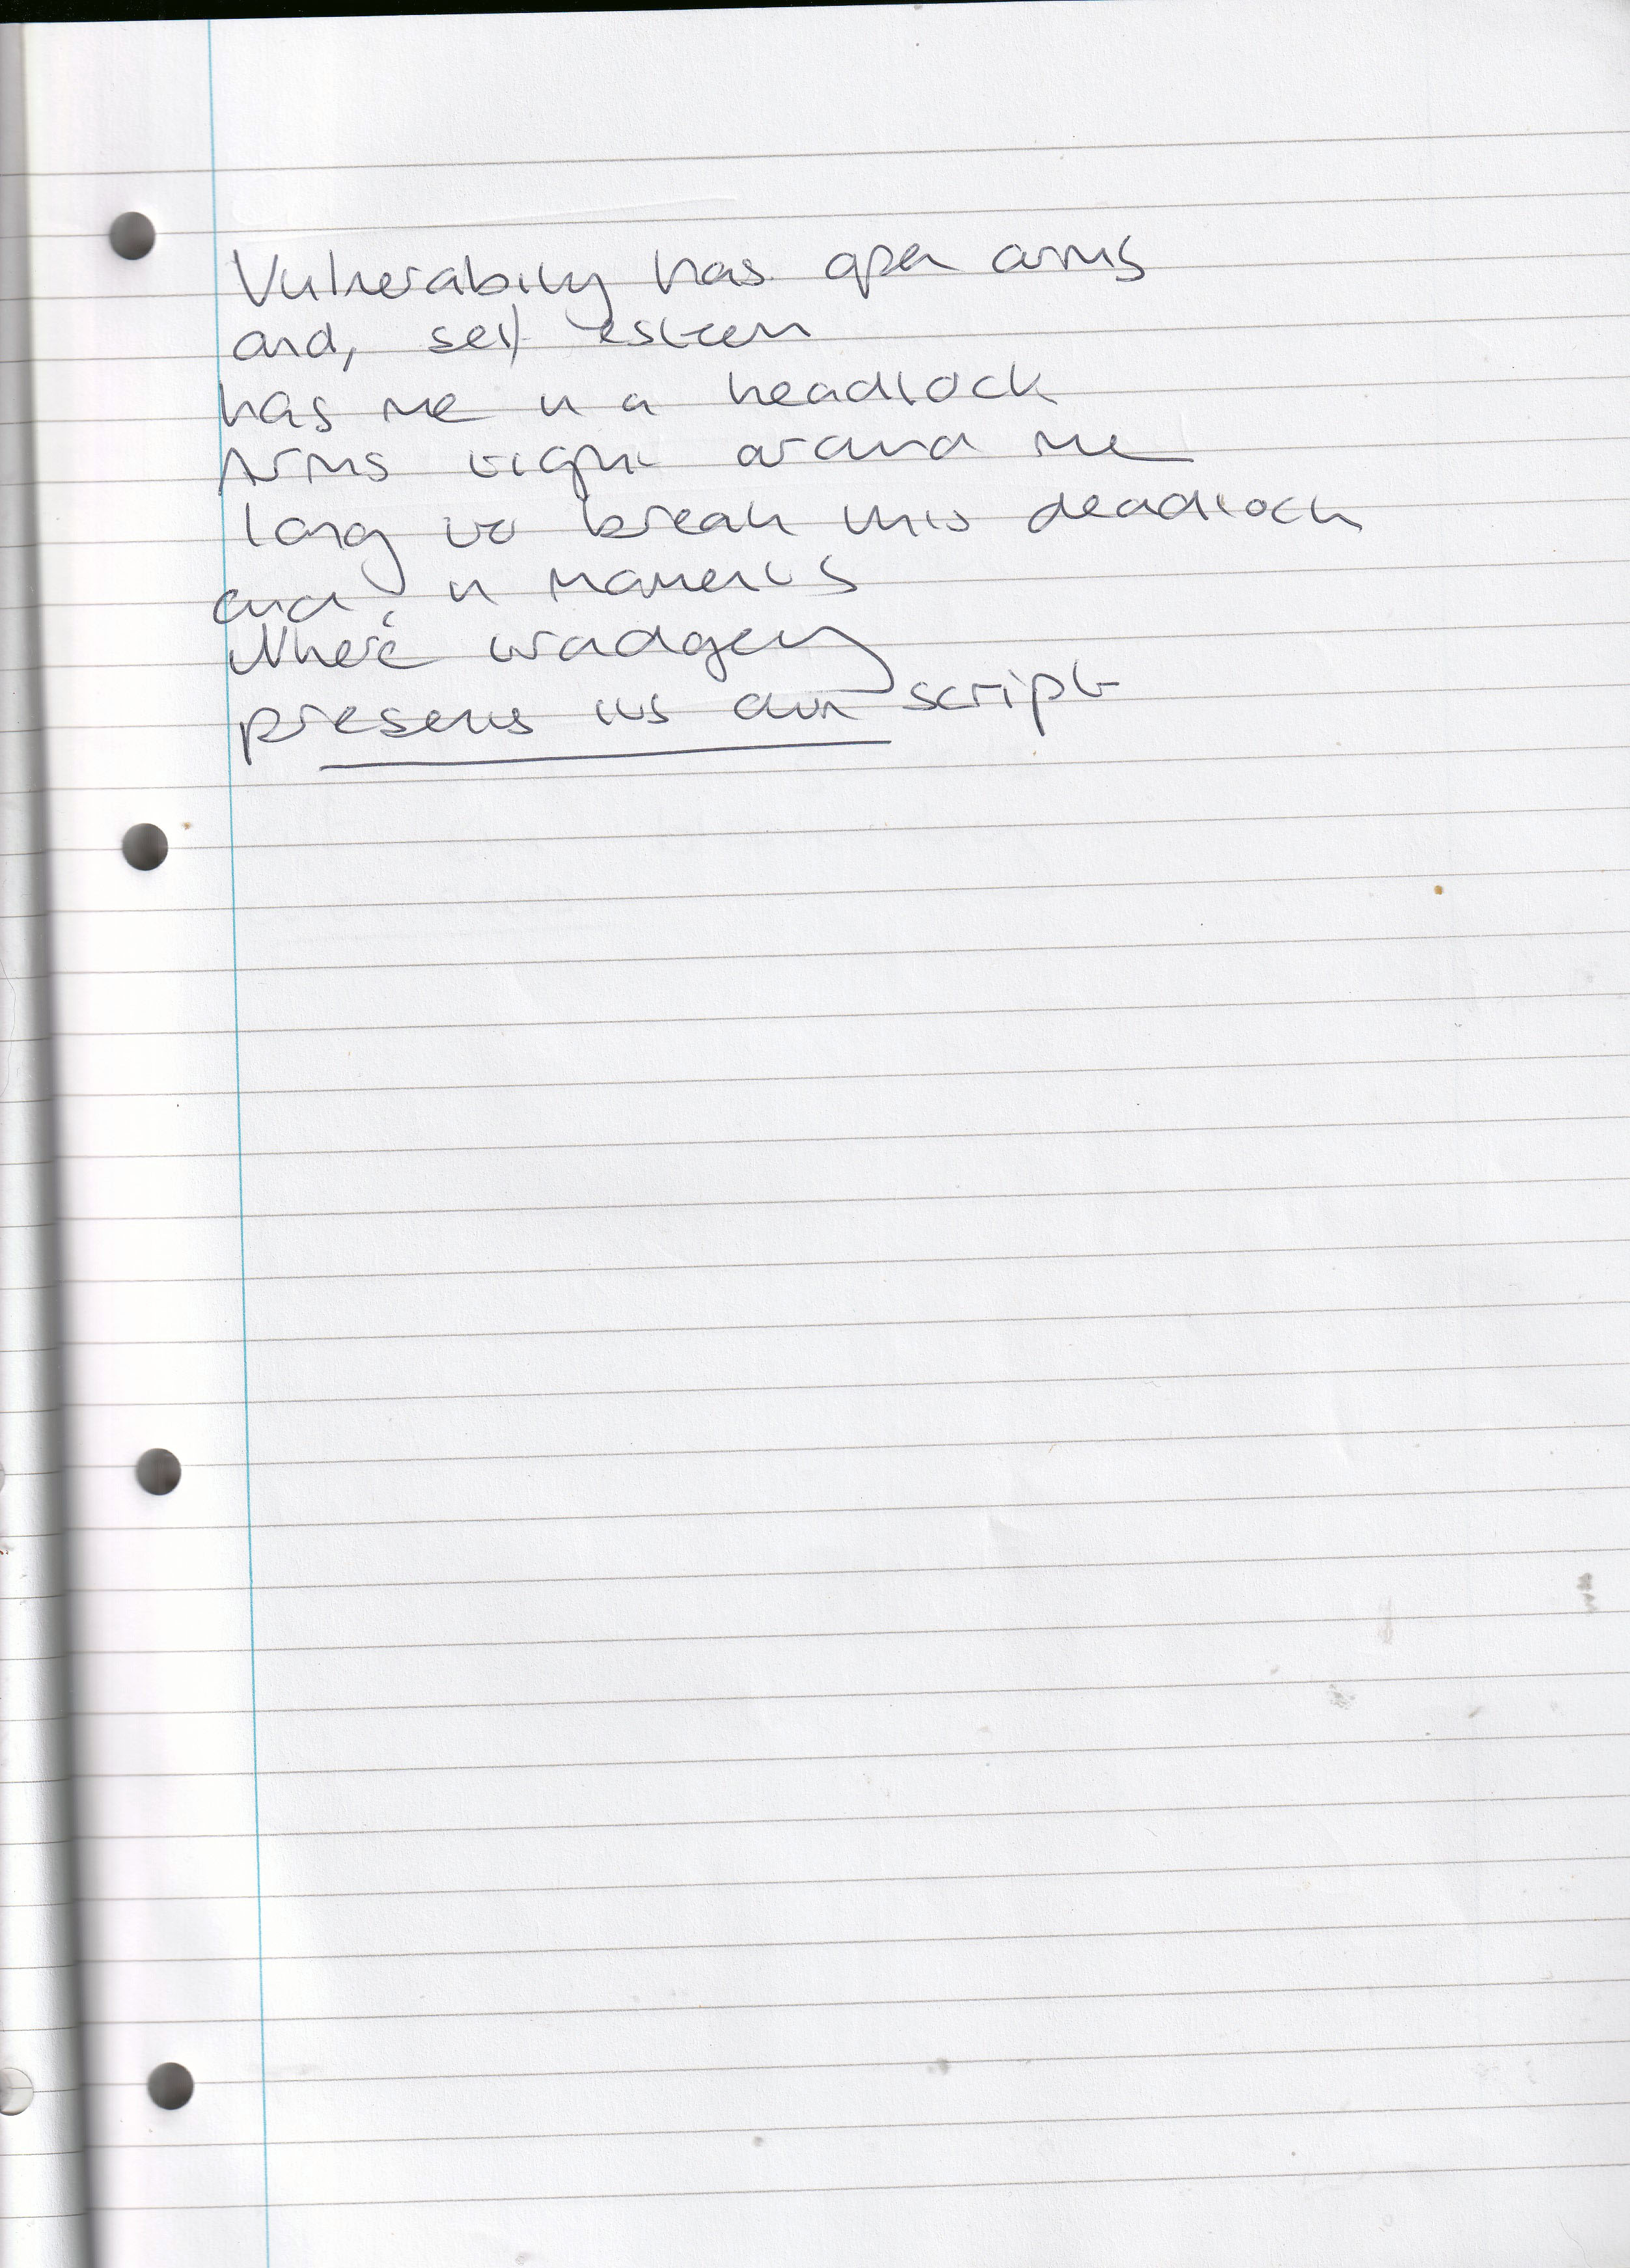 Vulnerability has open arms
and, self esteem
has me in a headlock
Arms tight around me
long to break this deadlock
and in moments
Where tragedy
presents its own script